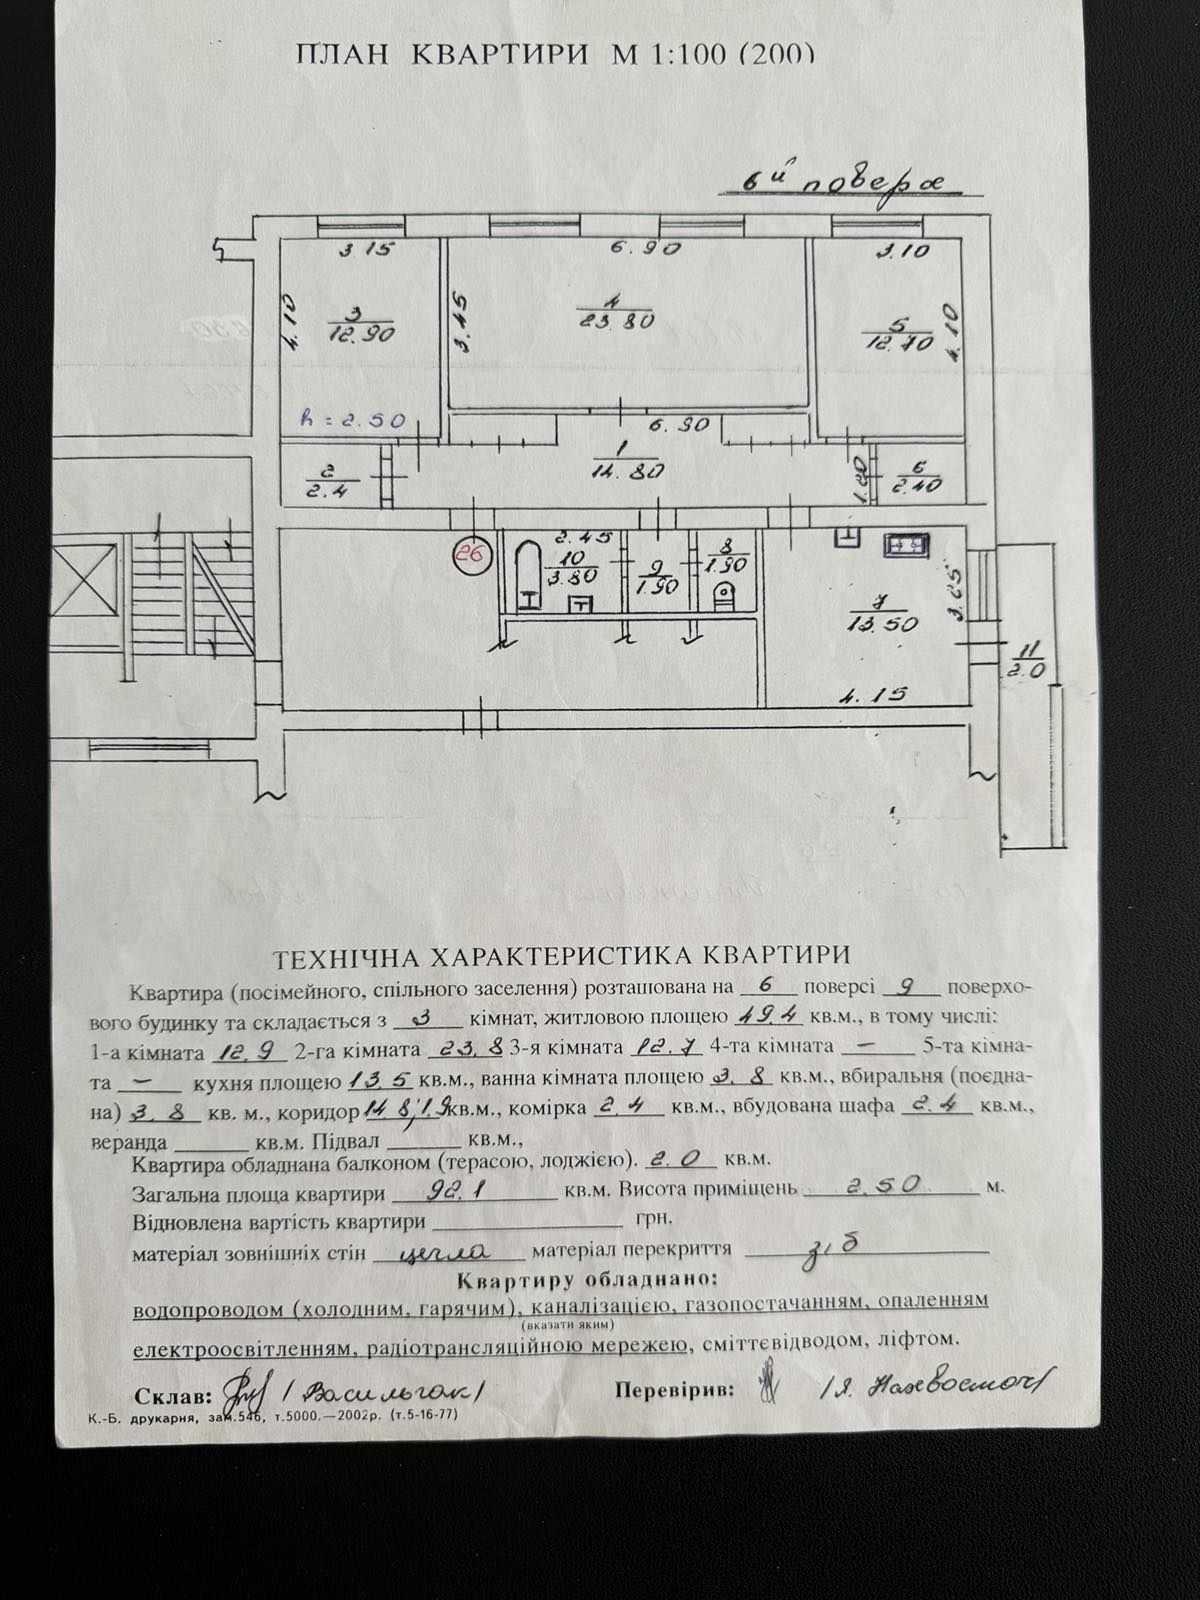 ПЛАН КВАРТИРИ М 1:100 (200)
6й поверх
3.15
6.90
3.10
4.10
3
12.90
3.45
4
23.80
5
12.70
4.10
h = 2.50
6.90
2
2.4
1
14.80
1.80
6
2.40
26
2.45
10
3.80
9
1.90
8
1.90
7
13.50
3.25
11
2.0
4.15
ТЕХНІЧНА ХАРАКТЕРИСТИКА КВАРТИРИ
Квартира (посімейного, спільного заселення) розташована на 6 поверсі 9 поверхо-
вого будинку та складається з 3 кімнат, житловою площею 49.4 кв.м., в тому числі:
1-а кімната 12.9 2-га кімната 23.8 3-я кімната 12.7 4-та кімната — 5-та кімна-
та — кухня площею 13.5 кв.м., ванна кімната площею 3.8 кв.м., вбиральня (поєдна-
на) 3.8 кв. м., коридор 14.8; 1.9 кв.м., комірка 2.4 кв.м., вбудована шафа 2.4 кв.м.,
веранда ______ кв.м. Підвал ______ кв.м.,
Квартира обладнана балконом (терасою, лоджією). 2.0 кв.м.
Загальна площа квартири 92.1 кв.м. Висота приміщень 2.50 м.
Відновлена вартість квартири ______ грн.
матеріал зовнішніх стін цегла матеріал перекриття з/б
Квартиру обладнано:
водопроводом (холодним, гарячим), каналізацією, газопостачанням, опаленням
(вказати яким)
електроосвітленням, радіотрансляційною мережею, сміттєвідводом, ліфтом.
Склав: / Васильчак / Перевірив: /Я.
К.-Б. друкарня, зам.546, т.5000.—2002р. (т.5-16-77)